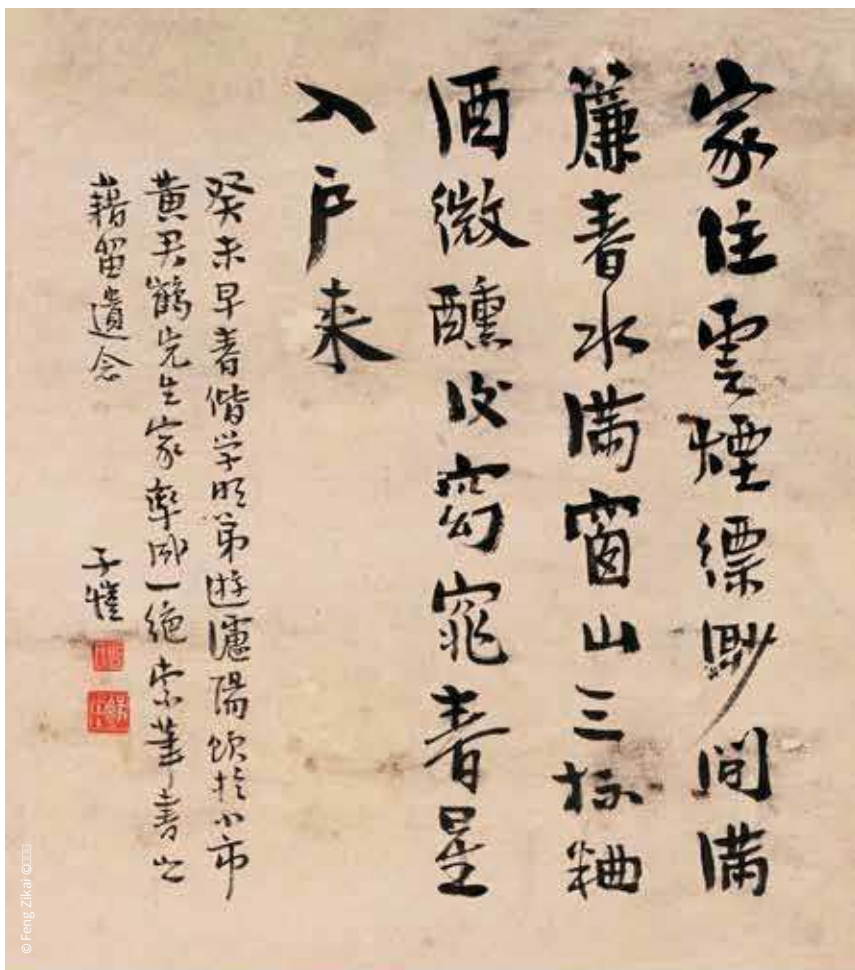 家住雲煙縹緲間满
簾春水满窗山三杯
酒微醺後窈窕春星
入户来
癸未早春偕学明弟遊瀘陽飲於小市
黄君鶴先生家率成一絶索筆書之
藉留遺念
子愷
© Feng Zikai ©